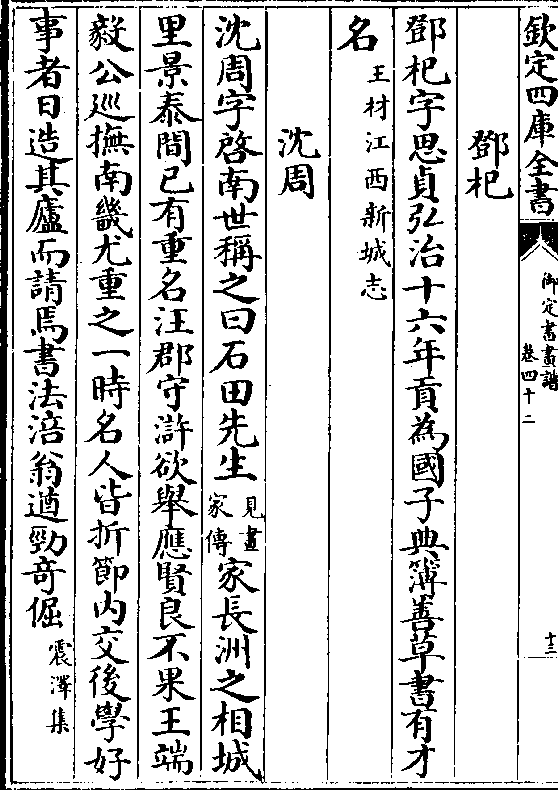 欽定四庫全書
御定書畫譜
卷四十二
十三
鄧杞
鄧杞字思貞弘治十六年貢為國子典簿善草書有才
名王材江西新城志
沈周
沈周字啓南世稱之曰石田先生見畫家傳家長洲之相城
里景泰間已有重名汪郡守滸欲舉應賢良不果王端
毅公巡撫南畿尤重之一時名人皆折節內交後學好
事者日造其廬而請焉書法涪翁遒勁奇倔震澤集